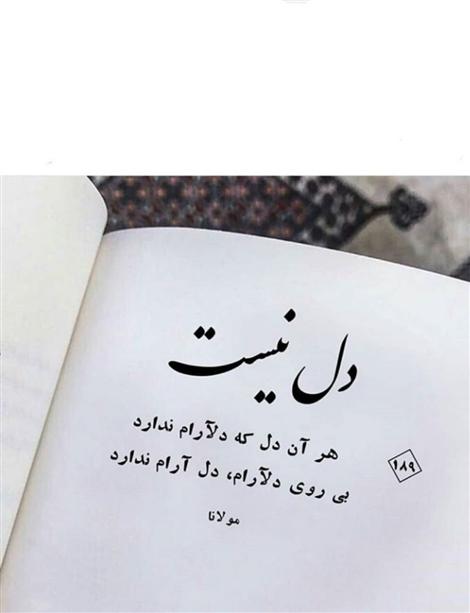 دل نیست
هر آن دل که دلآرام ندارد
بی روی دلآرام، دل آرام ندارد
مولانا
۱۸۹